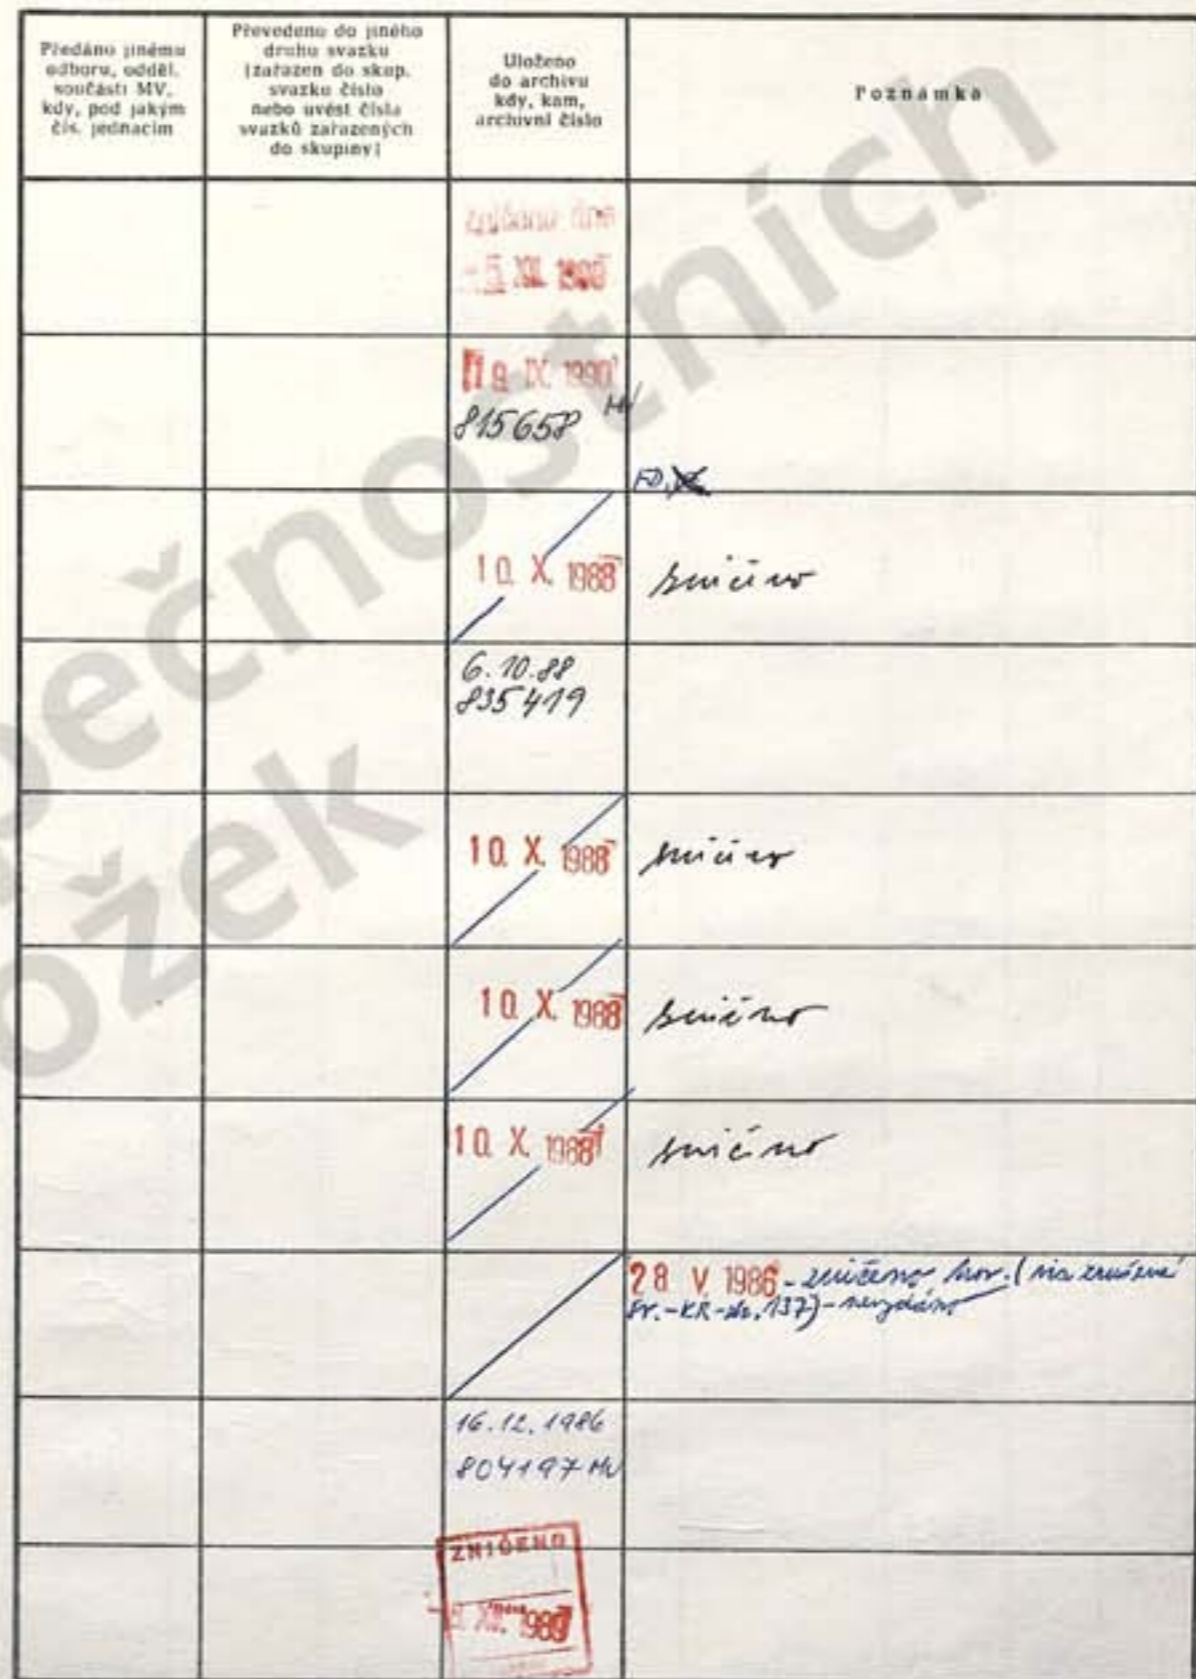 Předáno jinému
odboru, odděl.
součásti MV,
kdy, pod jakým
čís. jednacím
Převedeno do jiného
druhu svazku
(zařazen do skup.
svazku číslo
nebo uvést čísla
svazků zařazených
do skupiny)
Uloženo
do archivu
kdy, kam,
archivní číslo
Poznámka
Zničeno dne
19. IX. 1990
815658 MV
FD,
10. X. 1988 zničeno
6.10.88
835419
10. X. 1988 zničeno
10. X. 1988 zničeno
10. X. 1988 zničeno
28 V. 1986 - zničeno
sv. - KR - 137) - nevydáno
16.12.1986
804197 MV
ZNIČENO
ečnostních
ožek